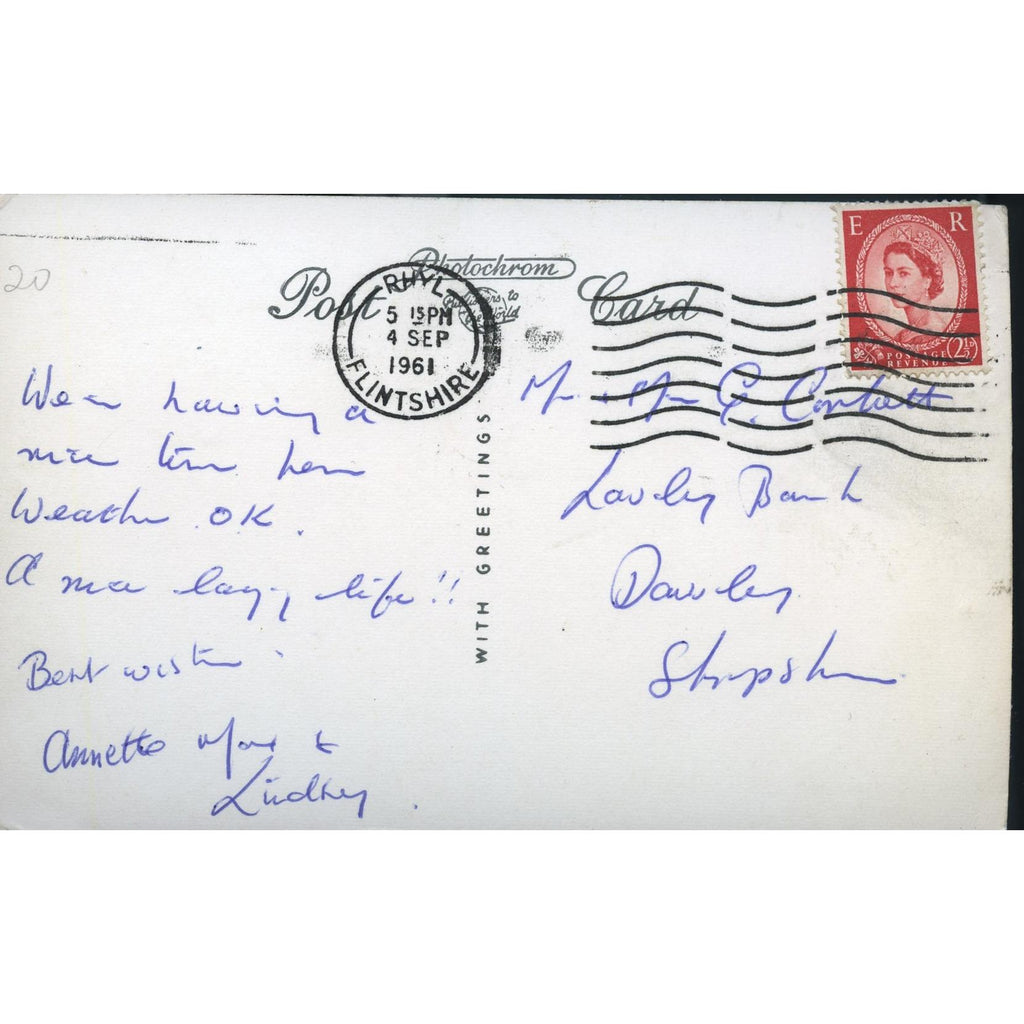 20
Post Card
Photochrom
Publishers to
the World
RHYL
5 15 PM
4 SEP
1961
FLINTSHIRE
E R
POSTAGE
REVENUE
2½D
WITH GREETINGS
We are having a
nice time here
Weather OK.
A nice lazy life!!
Best wishes
Annette &
Lindsey.
Mr. Mrs G. Corbett
Bank
Dawley
Shropshire